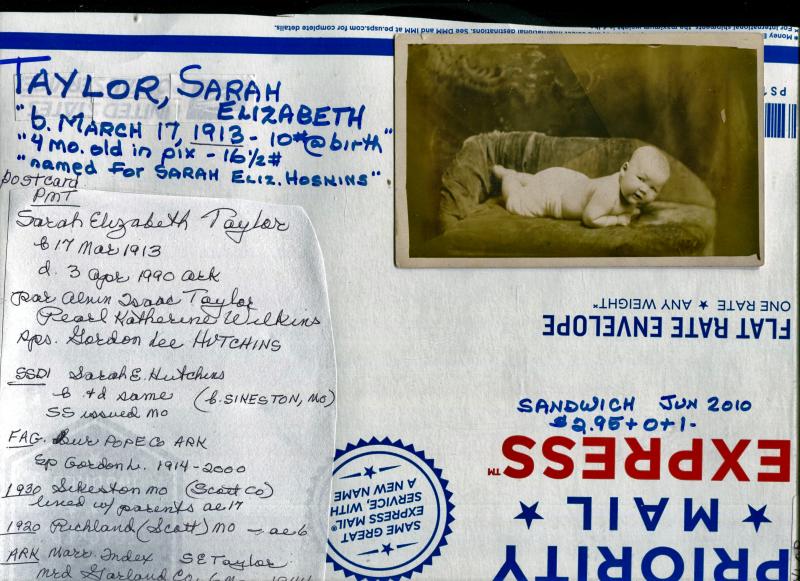 For International
Money
international destinations. See DMM and IMM at pe.usps.com for complete details.
PS 1
TAYLOR, SARAH
ELIZABETH
"b. MARCH 17, 1913 - 10# @ birth"
"4 mo. old in pix - 16½#
"named for SARAH ELIZ. HOSKINS"
postcard
PMT
Sarah Elizabeth Taylor
b 17 Mar 1913
d. 3 Apr 1990 Ark
par Alvin Isaac Taylor
Pearl Katherine Wilkins
Sps. Gordon Lee HUTCHINS
SSDI Sarah E. Hutchins
b + d same (b. SIKESTON, MO)
SS issued MO
FAG. Bur POPE Co ARK
Sp Gordon L. 1914-2000
1930 Sikeston MO (Scott Co)
lived w/ parents ae 17
1920 Richland (Scott) MO - ae 6
ARK Marr. Index S E Taylor
mrd Garland Co.
ONE RATE ★ ANY WEIGHT*
FLAT RATE ENVELOPE
SANDWICH JUN 2010
$2.95 + 0 + 1-
EXPRESS™
MAIL
PRIORITY
SAME GREAT
EXPRESS MAIL®
SERVICE, WITH
A NEW NAME